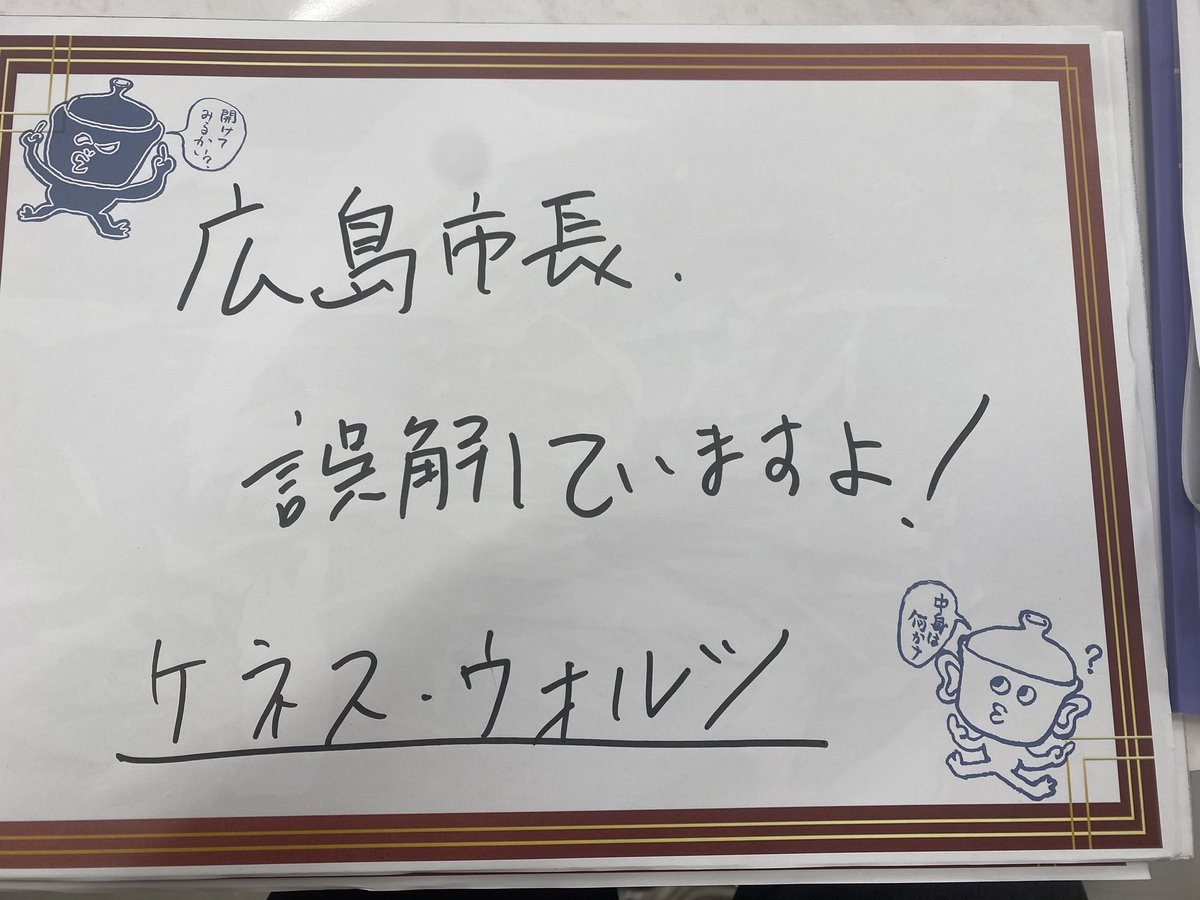 開けて
みるかい?
広島市長.
誤解していますよ!
ケネス・ウォルツ
中身は
何かナ
?